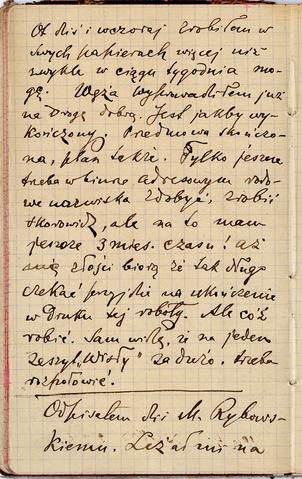 Ot dziś i wczoraj zrobiłem w
swych papierach więcej niż
zwykle w ciągu tygodnia mo-
gę. Wgza wyprowadziłem już
na drogę dobrą. Jest jakby wy-
kończony. Przedmowa skończo-
na, plan także. Tylko jeszcze
trzeba w biurze adresowym rodo-
we nazwiska zdobyć, zrobić
skorowidz, ale na to mam
jeszcze 3 mies. czasu! Aż
złości biorą że tak długo
czekać przyjdzie na ukończenie
w druku tej roboty. Ale cóż
robić. Sam widzę, że na jeden
zeszyt „Wisły” za dużo. trzeba
rozpołowić.
Odpisałem dziś M. Rybows-
kiemu. Leżał mi na